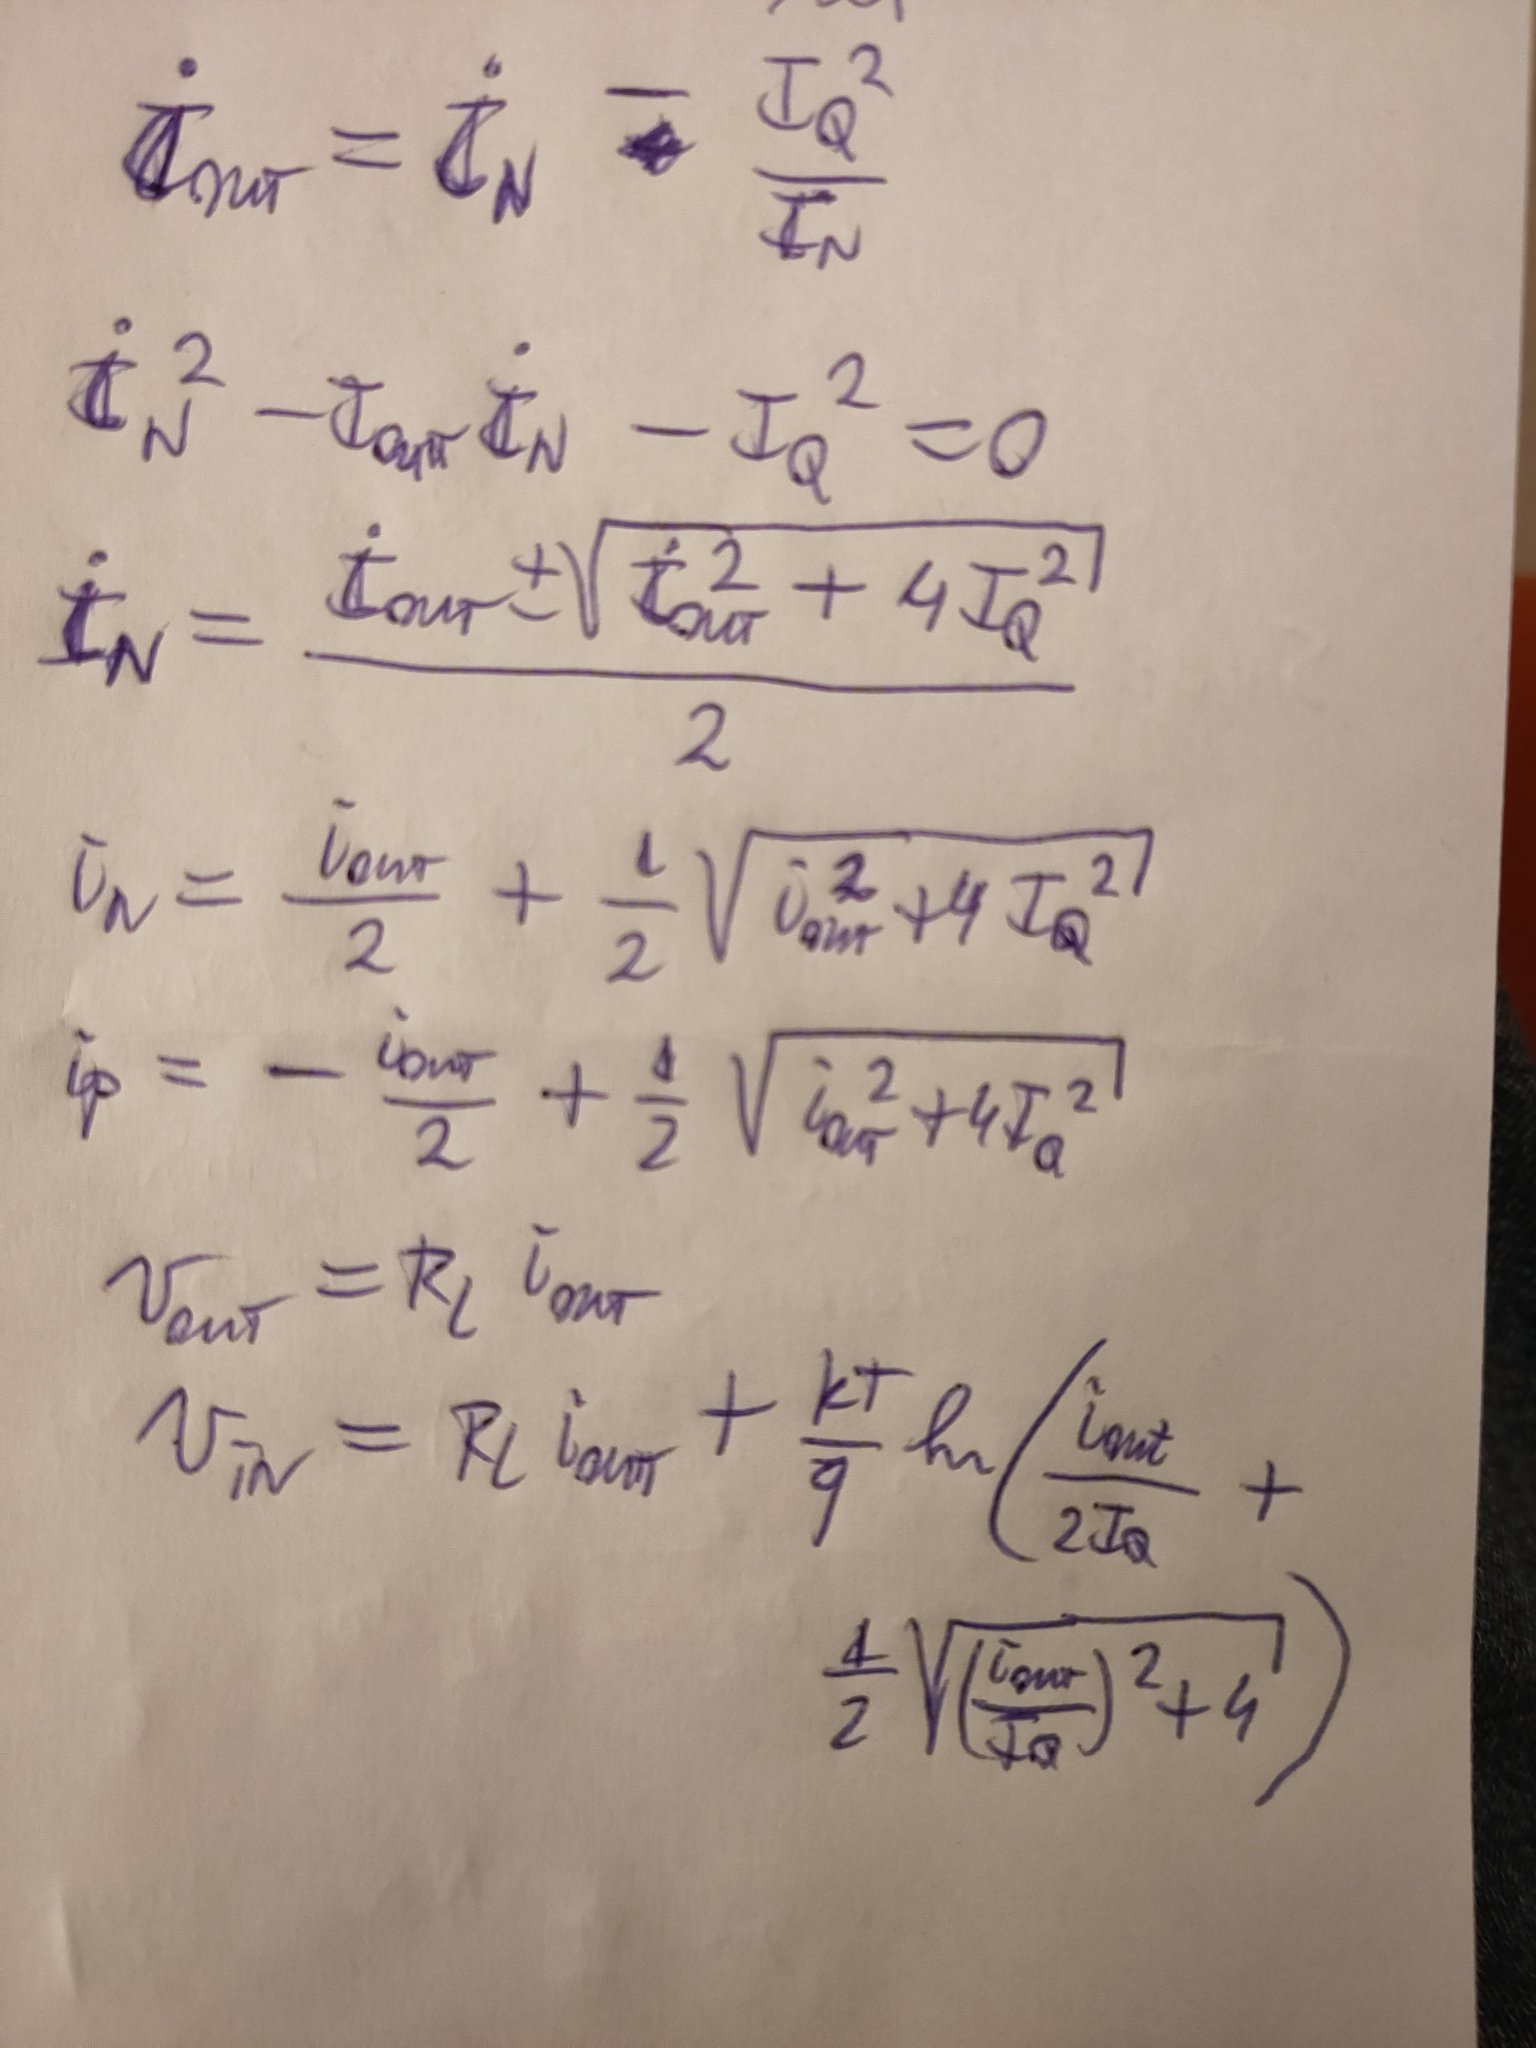 i_out = i_N - I_Q^2 / i_N
i_N^2 - I_out i_N - I_Q^2 = 0
i_N = (i_out ± √(i_out^2 + 4 I_Q^2)) / 2
i_N = i_out/2 + 1/2 √(i_out^2 + 4 I_Q^2)
i_p = - i_out/2 + 1/2 √(i_out^2 + 4 I_Q^2)
v_out = R_L i_out
v_in = R_L i_out + kT/q ln( i_out / 2I_Q +
1/2 √((i_out / I_Q)^2 + 4) )